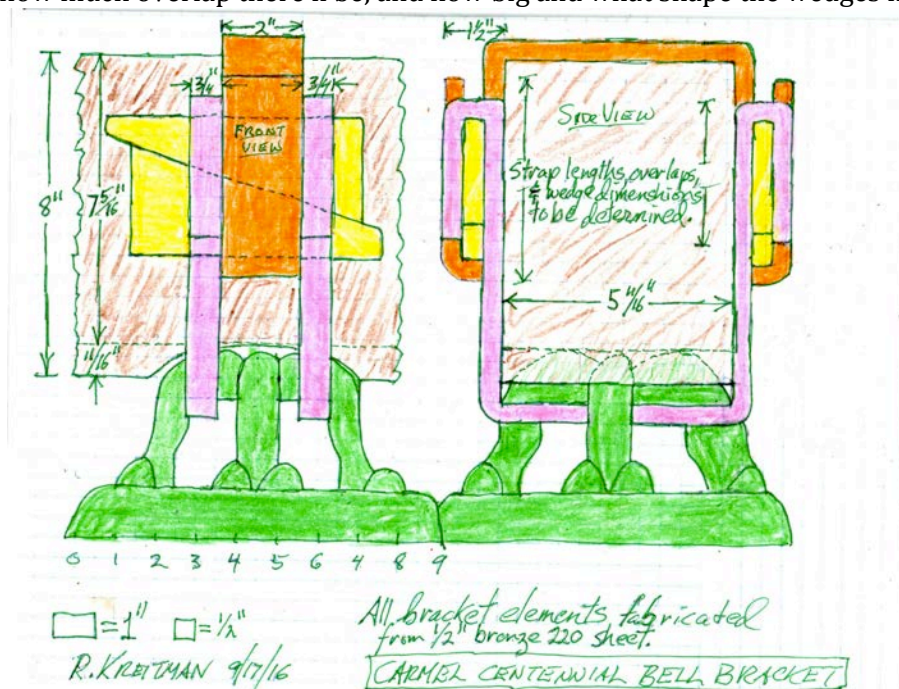 how much overlap there'll be, and how big and what shape the wedges
2"
1½"
¾"
¾"
FRONT
VIEW
8"
7 5/16"
11/16"
SIDE VIEW
Strap lengths, overlaps,
& wedge dimensions
to be determined.
5 11/16"
0 1 2 3 4 5 6 7 8 9
=1" =½"
All bracket elements fabricated
from ½" bronze 220 sheet.
R. KREITMAN 9/17/16
CARMEL CENTENNIAL BELL BRACKET